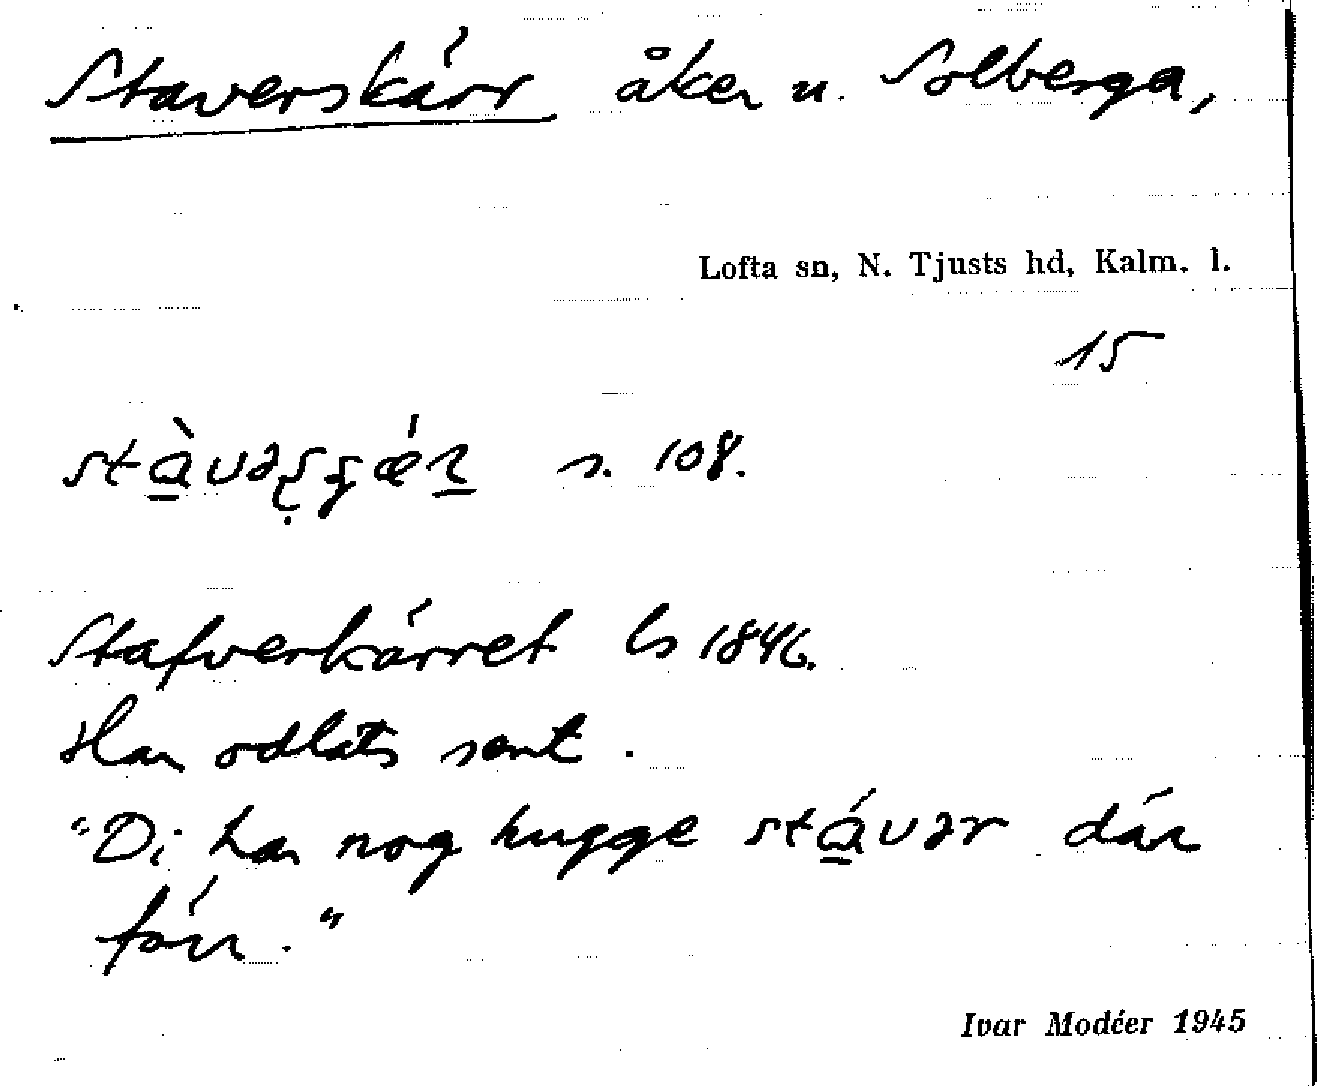 Staverskärr åker u. Solberga,
Lofta sn, N. Tjusts hd, Kalm. l.
15
s. 108.
Stafverkärret ls 1846.
Har odlats sent.
"Di har nog hugge stávər där
förr."
Ivar Modéer 1945